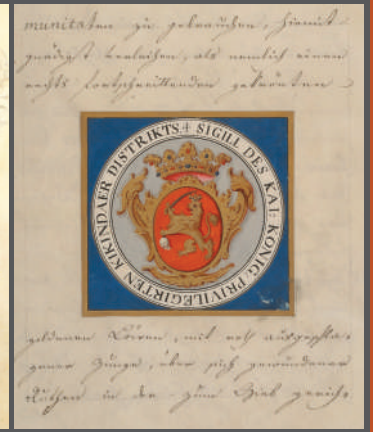 munitaten zu gebrauchen, hiemit
gnädigst verleihen, als nemlich einen
rechts fortschreittenden gekrönten
SIGILL DES KAI: KÖNIG: PRIVILEGIRTEN KIKINDAER DISTRIKTS
goldenen Löwen, mit roth ausgeschla-
gener Zunge, über sich gewundener
in der zum Hieb gerich-